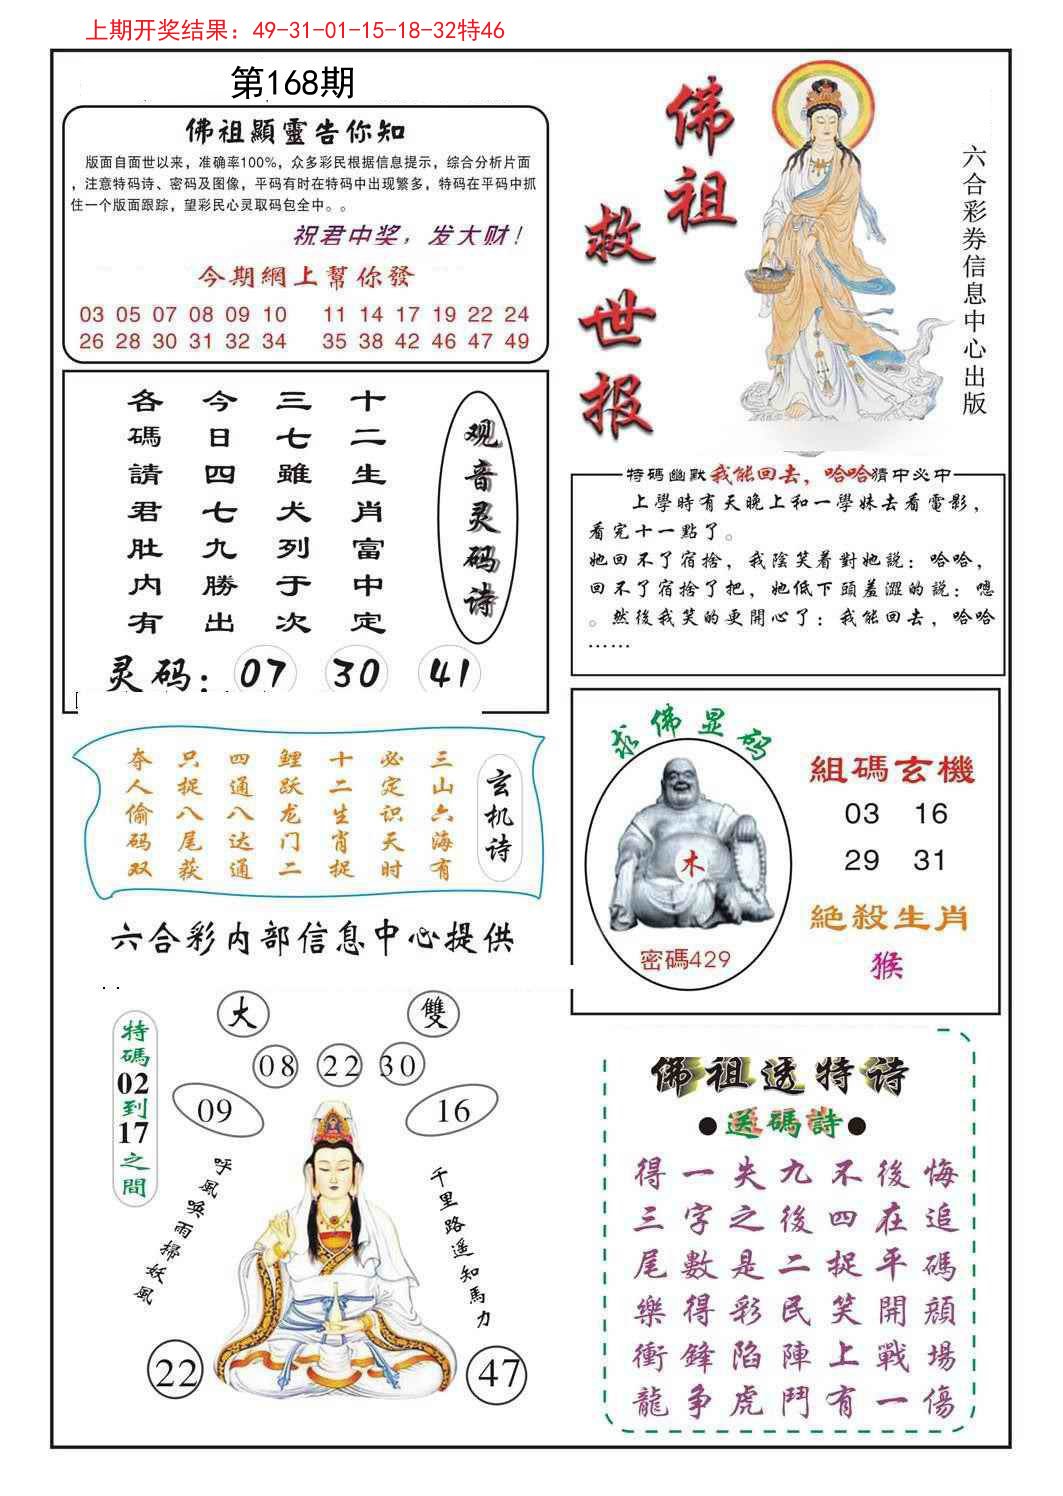 上期开奖结果：49-31-01-15-18-32特46
第168期
佛祖顯靈告你知
版面自面世以来，准确率100%，众多彩民根据信息提示，综合分析片面
，注意特码诗、密码及图像，平码有时在特码中出现繁多，特码在平码中抓
住一个版面跟踪，望彩民心灵取码包全中。。
祝君中奖，发大财！
今期網上幫你發
03 05 07 08 09 10 11 14 17 19 22 24
26 28 30 31 32 34 35 38 42 46 47 49
佛祖
救世报
六合彩券信息中心出版
观音灵码诗
十二生肖富中定
三七雖犬列于次
今日四七九勝出
各碼請君肚内有
灵码：07 30 41
特碼幽默我能回去，哈哈猜中必中
上學時有天晚上和一學妹去看電影，
看完十一點了。
她回不了宿捨，我陰笑着對她説：哈哈，
回不了宿捨了把，她低下頭羞澀的説：嗯
。然後我笑的更開心了：我能回去，哈哈
……
玄机诗
三山六海有
必定识天时
十二生肖捉
鲤跃龙门二
四通八达通
只捉八尾获
夺人偷码双
六合彩内部信息中心提供
求佛显码
木
密碼429
組碼玄機
03 16
29 31
絕殺生肖
猴
大 雙
特碼02到17之間
08 22 30
09 16
呼風唤雨掃妖風
千里路遥知馬力
22 47
佛祖透特诗
●送碼詩●
得一失九不後悔
三字之後四在追
尾數是二捉平碼
樂得彩民笑開顔
衝鋒陷陣上戰場
龍争虎鬥有一傷